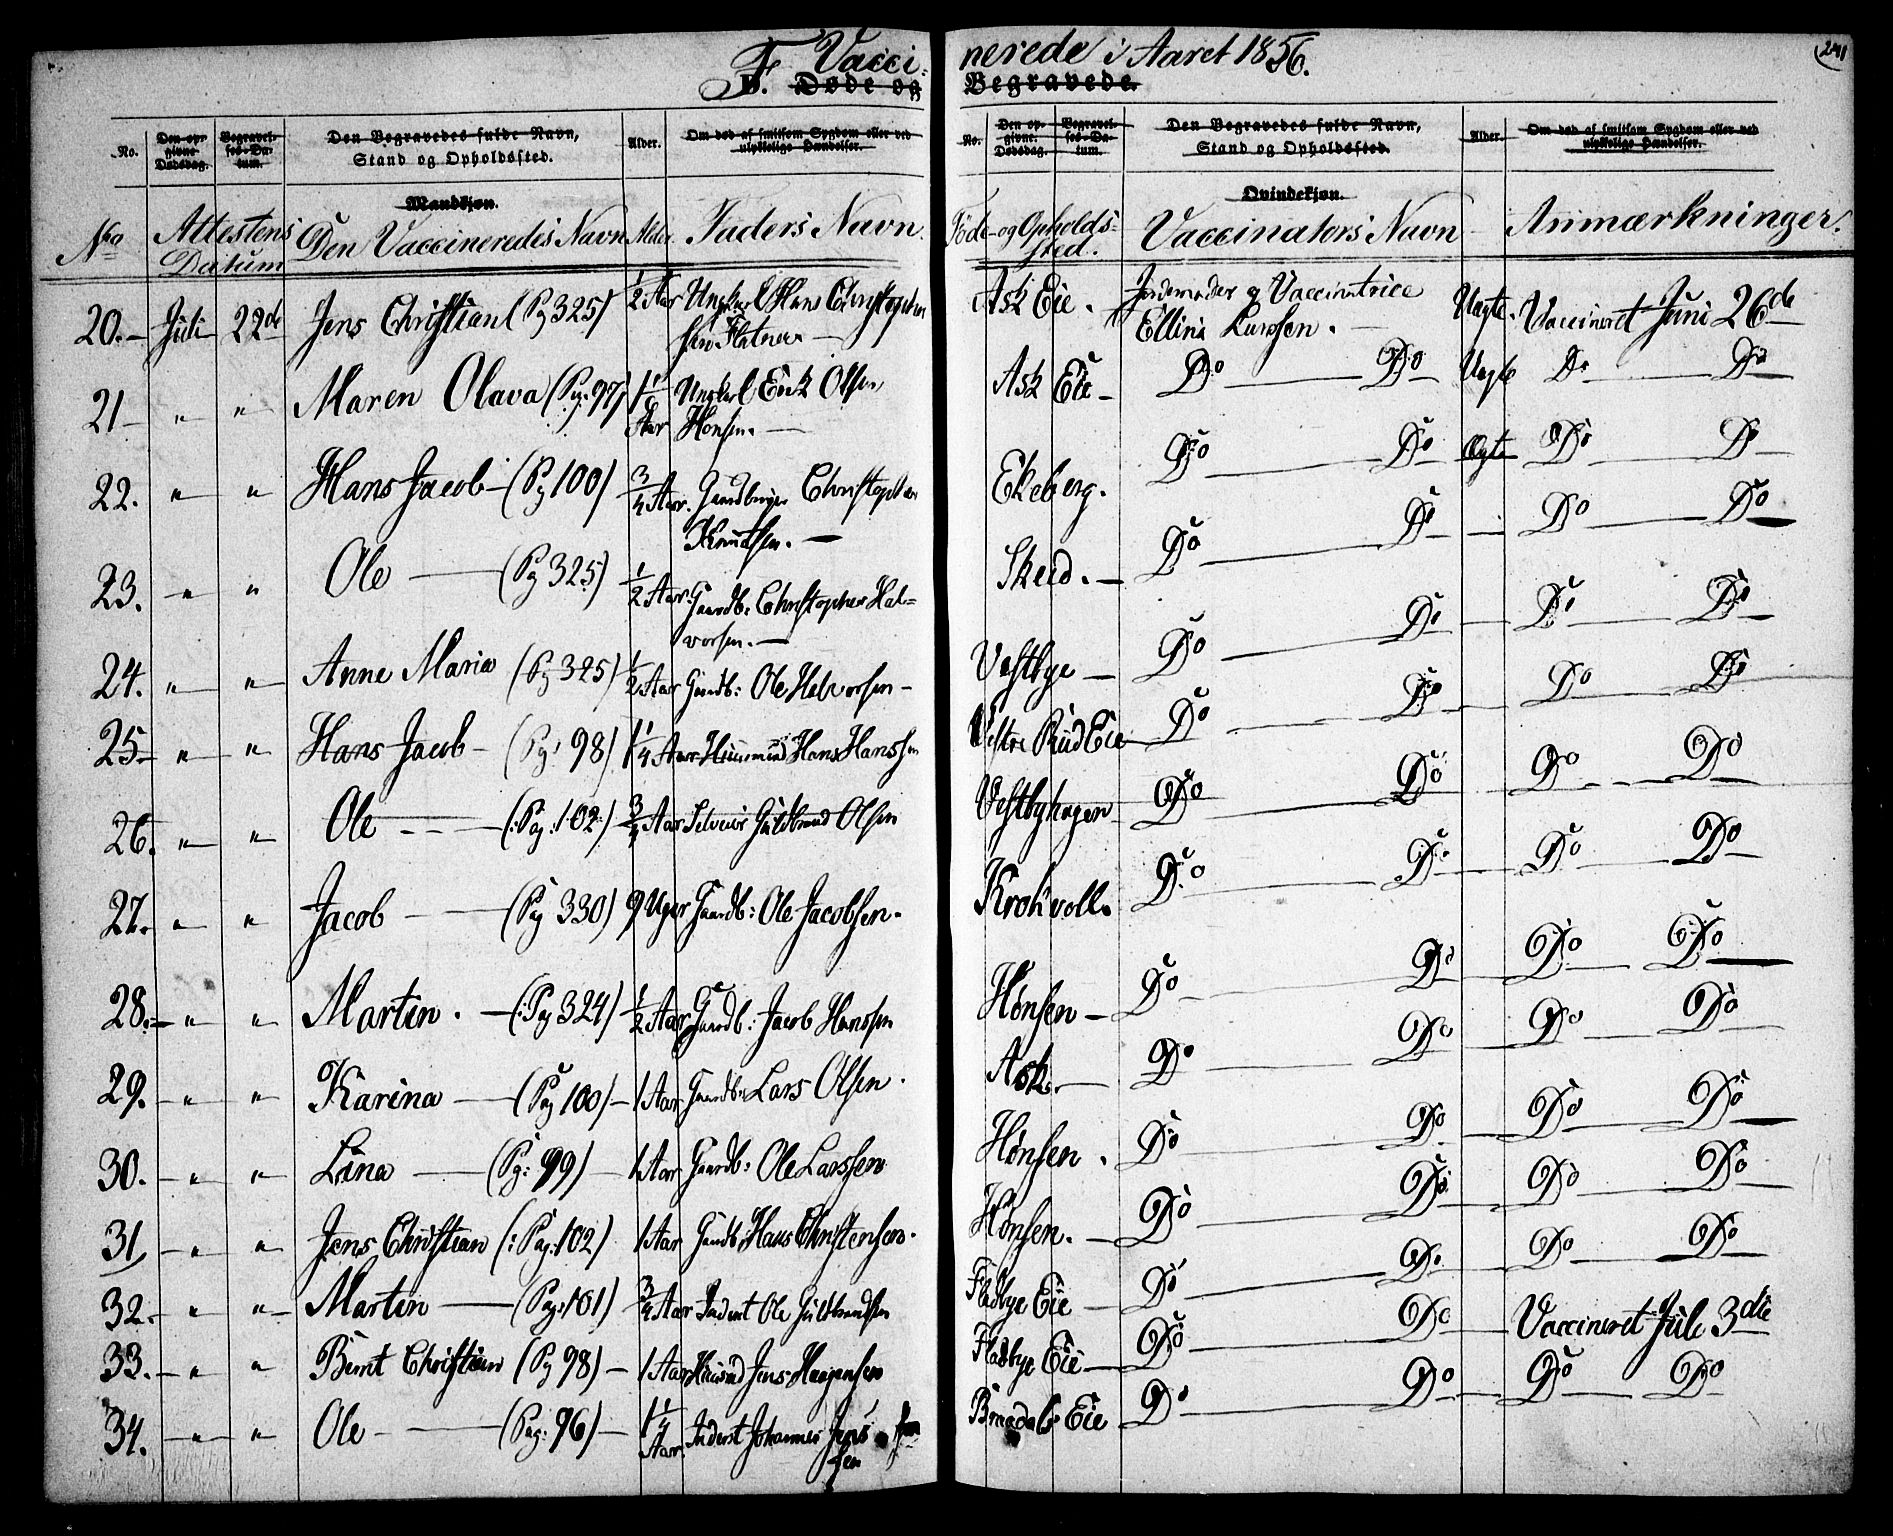 F. Vacci- nerede i Aaret 1856.
241
B. Døde og Begravede.
No. Den opgivne Dødsdag. Begravelses-Datum. Den Begravedes fulde Navn, Stand og Opholdssted. Alder. Om død af smitsom Sygdom eller ved ulykkelige Hændelser.
No. Den opgivne Dødsdag. Begravelses-Datum. Den Begravedes fulde Navn, Stand og Opholdssted. Alder. Om død af smitsom Sygdom eller ved ulykkelige Hændelser.
Mandkjøn. Qvindekjøn.
No Attestens Datum Den Vaccineredes Navn Alder. Faders Navn. Föde- og Opholds-sted. Vaccinators Navn Anmærkninger.
20. Juli 22de Jens Christian (Pg 325) 1/2 Aar Ungkarl Hans Christophersen Ask Eie. Jordemoder og Vaccinatrice Ellina Larssen. Uægte. Vaccineret Juni 26de
21 " " Maren Olava (Pg. 97) 1 1/6 Aar Ungkarl Erik Olsen Hønsen. Ask Eie Do Do Uægte Do Do
22. " " Hans Jacob (Pg 100) 3/4 Aar. Gaardbruger Christopher Knudsen. Ekeberg. Do Do Ægte Do Do
23. " " Ole (Pg 325) 1/2 Aar. Gaardb: Christopher Halvorsen. Skeid. Do Do Do Do
24. " " Anne Maria (Pg 325) 1/2 Aar Gaardb: Ole Halvorsen Vestbye Do Do Do Do
25 " " Hans Jacob (Pg: 98) 1 1/4 Aar Huusmand Hans Hanssen Vestre Rud Eie Do Do Do Do
26. " " Ole (: Pag: 102) 3/4 Aar Selveier Guldbrand Olsen Vestbyhagen Do Do Do Do
27. " " Jacob (Pg 330) 9 Uger Gaardb: Ole Jacobsen. Krohvoll. Do Do Do Do
28. " " Martin. (: Pag 324) 1/2 Aar Gaardb: Jacob Hanssen Hønsen Do Do Do Do
29. " " Karina (Pag 100) 1 Aar Gaardb: Lars Olsen. Ask. Do Do Do Do
30. " " Lina (Pg: 99) 1 Aar Gaardb: Ole Larssen Hønsen. Do Do Do Do
31, " " Jens Christian (: Pag: 102) 1 Aar Gaardb: Hans Christensen. Hønsen. Do Do Do Do
32. " " Martin (Pag: 101) 3/4 Aar Inderst Ole Guldbrandsen Fladbye Eie Do Do Do Do
33. " " Bernt Christian (Pg 98) 1 Aar Huusmd Jens Haagensen Fladbye Eie Do Do Vaccineret Juli 3die
34. " " Ole (Pag: 96) 1 1/4 Aar. Inderst Johannes Jenssen Braadals Eie Do Do Do Do